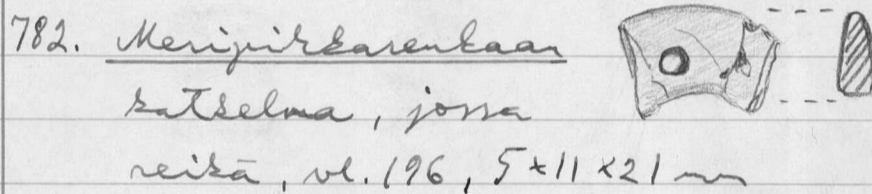 782. Meripihkarenkaan
katkelma, jossa
reikä, vl. 196, 5×11×21 mm